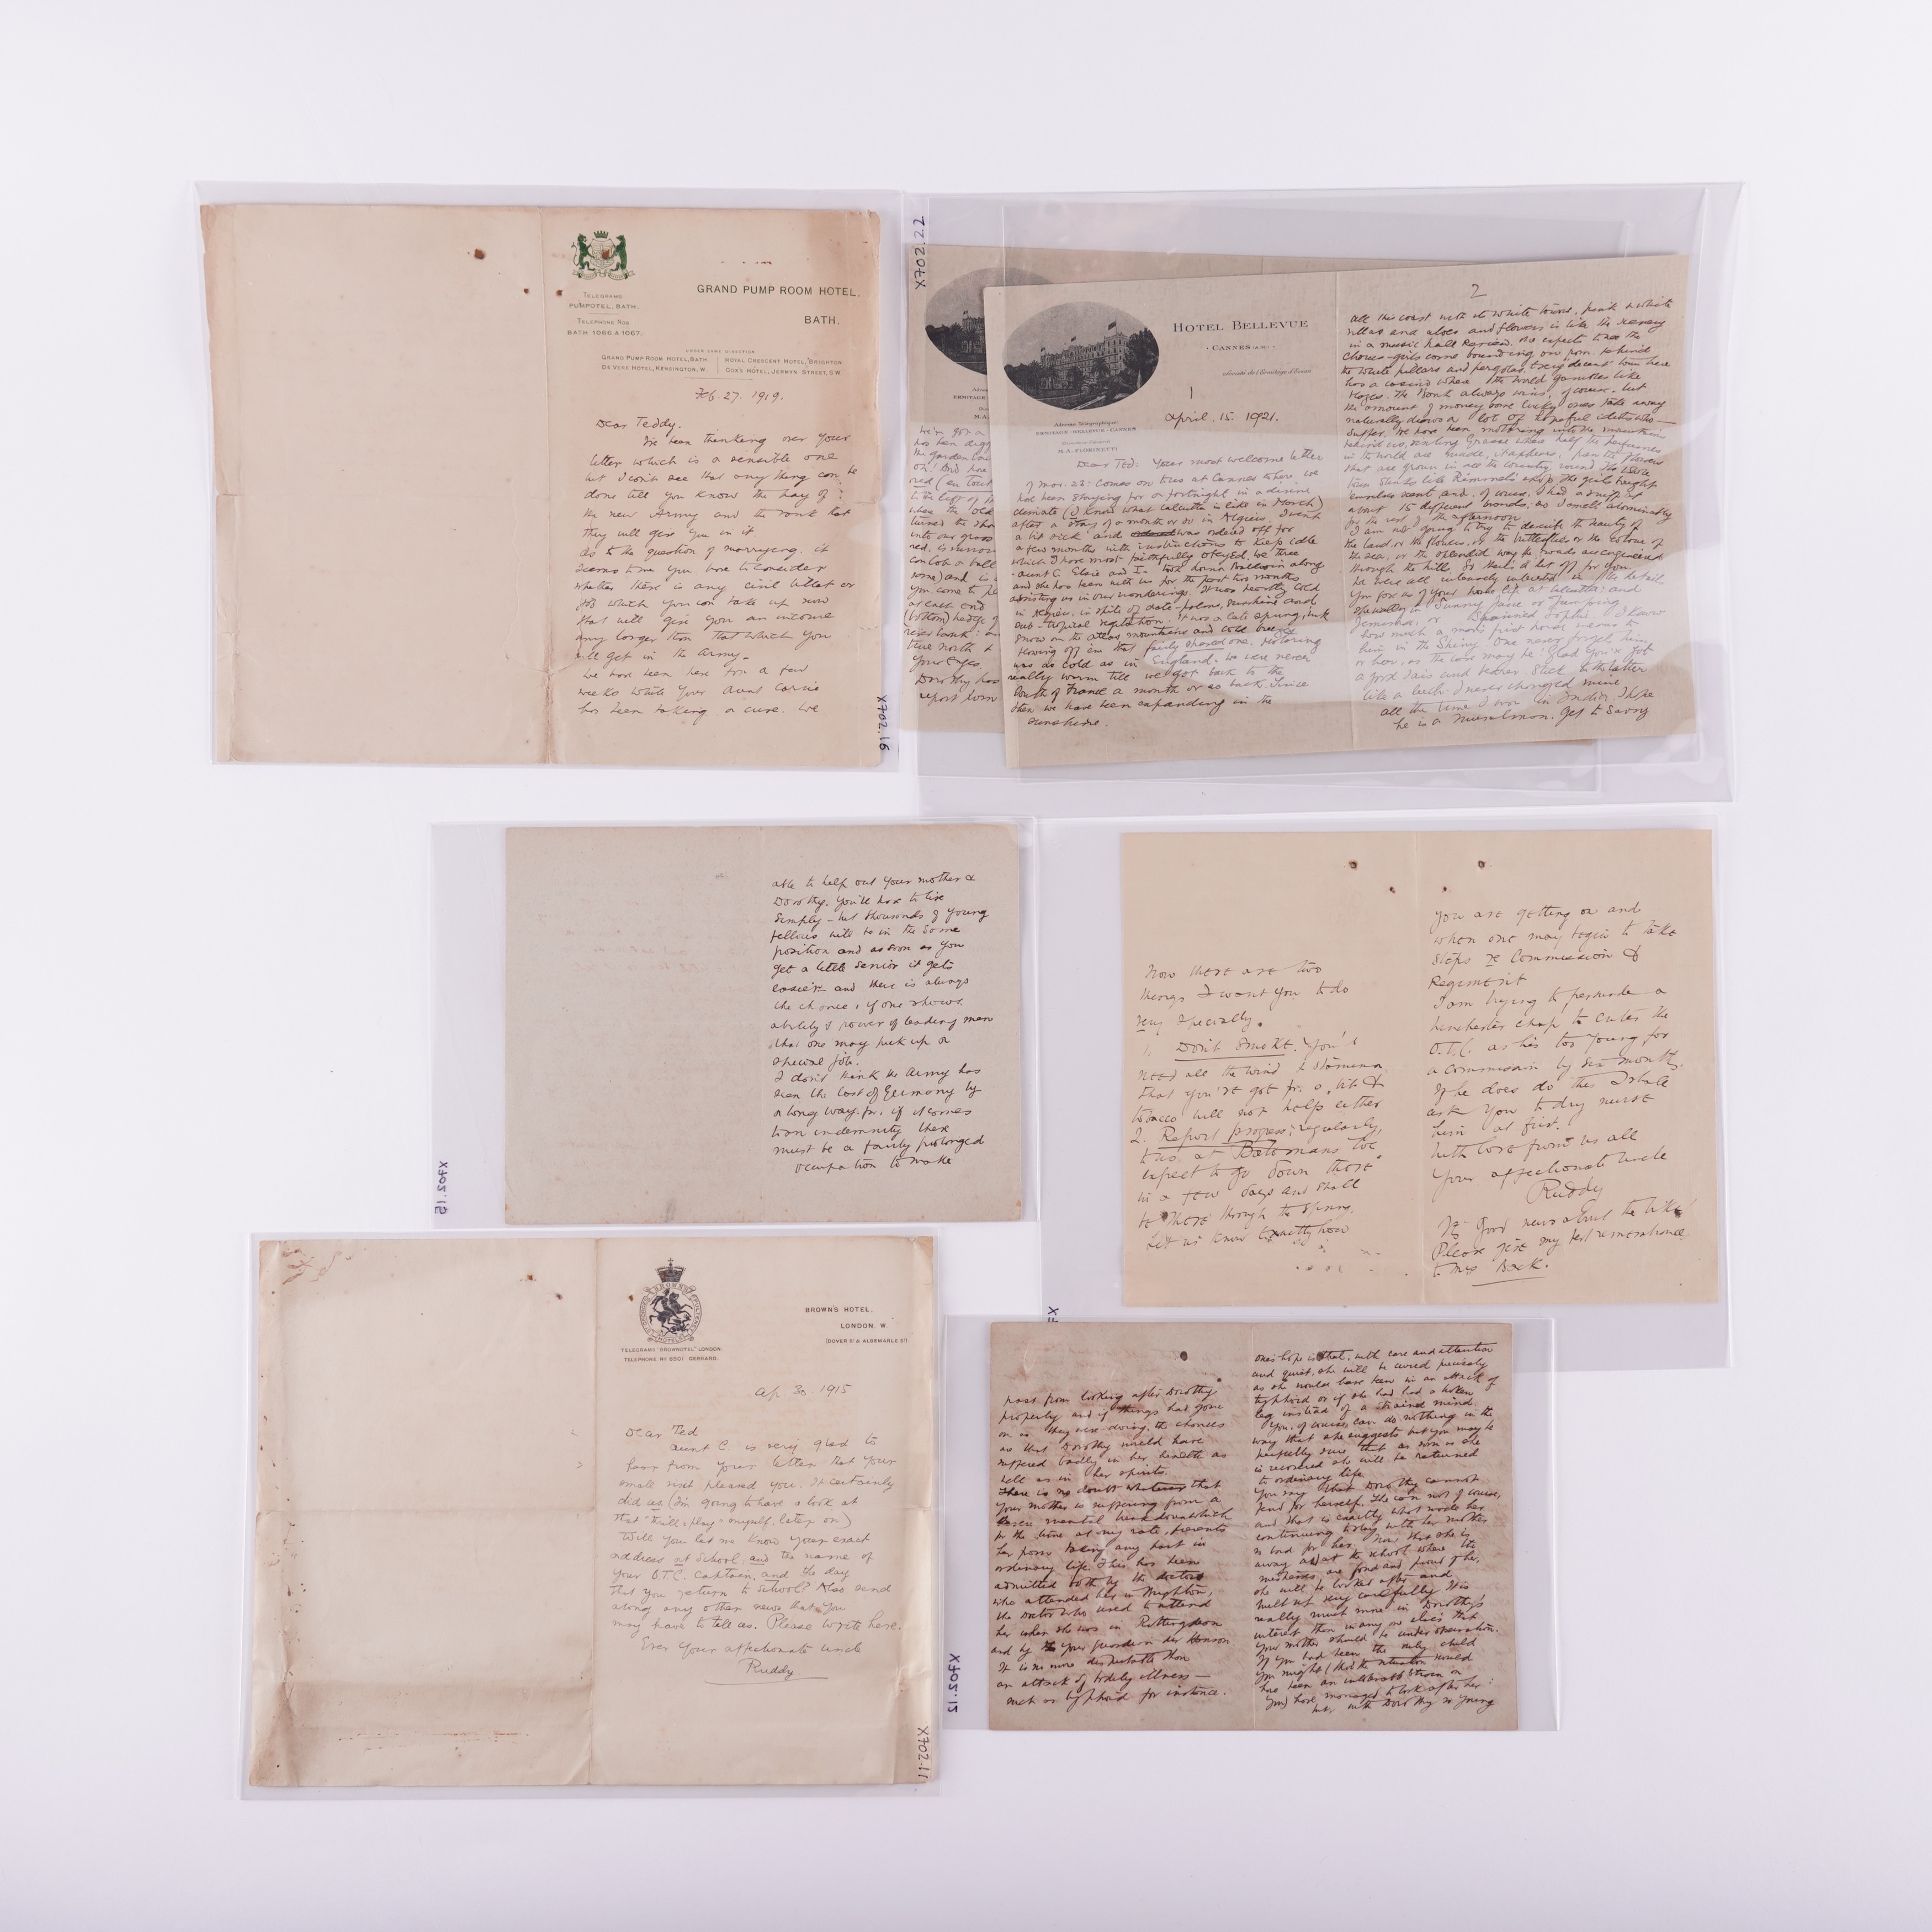 TELEGRAMS
PUMPOTEL, BATH.
TELEPHONE Nos
BATH 1066 & 1067.
GRAND PUMP ROOM HOTEL.
BATH.
UNDER SAME DIRECTION
GRAND PUMP ROOM HOTEL, BATH
DE VERE HOTEL, KENSINGTON, W.
ROYAL CRESCENT HOTEL, BRIGHTON
COX'S HOTEL, JERMYN STREET, S.W.
Feb 27. 1919.
Dear Teddy.
I've been thinking over your
letter which is a sensible one
but I don't see that anything can be
done till you know the pay of
the new Army and the rank that
they will give you in it
As to the question of marrying, it
seems to me you have to consider
whether there is any civil billet or
job which you can take up now
that will give you an income
any larger than that which you
will get in the army.
We have been here for a few
weeks while your Aunt Carrie
has been taking a cure. We
X702.16
X702.22
We've got a
has been
the garden
oh! And
red (en tout
to the left of
where the old
turned the
into our grass
red, is
can lob a ball
some) and is
you come to
at east end
(bottom) hedge of
true north &
your eyes.
Dorothy has
report from
HOTEL BELLEVUE
- CANNES (A.-M.) -
Société de l'Ermitage d'Evian
Adresse Télégraphique:
ERMITAGE-BELLEVUE-CANNES
Directeur Général
M. A. FLORINETTI
1
April. 15. 1921.
Dear Ted: Your most welcome letter
of Mar. 23: comes on to us at Cannes where we
had been staying for a fortnight in a divine
climate (I know what Calcutta is like in March)
after a stay of a month or so in Algiers. I went
a bit sick and was ordered off for
a few months with instructions to keep idle
which I have most faithfully obeyed. We three
- Aunt C. Elsie and I - took Lorna Baldwin along
and she has been with us for the past two months
assisting us in our wanderings. It was beastly cold
in Algiers, in spite of date-palms, sunshine and
sub-tropical vegetation. It was a late spring, with
snow on the Atlas mountains and cold breezes
blowing off 'em that fairly shaved one. Motoring
was as cold as in England. We were never
really warm till we got back to the
South of France a month or so back. Since
then we have been expanding in the
sunshine.
2
All this coast with its white towns, pink & white
villas and aloes and flowers is like the scenery
in a music hall Review. One expects to see the
chorus-girls come bounding on from behind
the white pillars and pergolas. Every decent town here
has a casino where all the world gambles like
blazes. The Bank always wins, of course, but
the amount of money some lucky ones take away
naturally draws a lot of hopeful idiots who
suffer. We have been motoring into the mountains
behind us, visiting Grasse where half the perfumes
in the world are made, it appears, from the flowers
that are grown in all the country round. The whole
town stinks like Rimmel's shop. The girls bought
scent and, of course, I had a sniff at
about 15 different brands, so I smelt abominably
for the rest of the afternoon.
I am not going to try to describe the beauty of
the land, or the flowers, or the butterflies or the colour of
the sea, or the splendid way the roads are engineered
through the hills. So that's a let off for you.
We were all intensely interested in the detail
you gave us of your life at Calcutta; and
especially in Sunny Jane or Jumping
Jemimer, or Sophie. I know
how much a man's first horse means to
him in the Shiny. One never forgets him
or her, as the case may be! Glad you've got
a good sais and bearer. Stick to the latter
like a leech: I never changed mine
all the time I was in India. I hope
he is a Musulman. Get to Savvy
able to help out your mother &
Dorothy. You'll have to live
simply - but thousands of young
fellows will be in the same
position and as soon as you
get a little senior it gets
easier - and there is always
the chance, if one shows
ability & power of leading men
that one may pick up a
special job.
I don't think the Army has
seen the last of Germany by
a long way. For, if it comes
to an indemnity there
must be a fairly prolonged
occupation to make
X702.15
Now there are two
things I want you to do
very specially.
1. Don't smoke. You'll
need all the wind & stamina
that you've got for a bit &
tobacco will not help either
2. Report progress, regularly,
to us at Batemans. We
expect to go down there
in a few days and shall
be there through the spring.
Let us know exactly how
you are getting on and
when one may begin to take
steps re Commission &
Regiment
I am trying to persuade a
Winchester chap to enter the
O.T.C. as he's too young for
a commission by six months.
If he does do this I shall
ask you to dry nurse
him at first.
With love from us all
Your affectionate Uncle
Ruddy
P.S. Good news about the
Please give my best remembrances
to Mrs
BROWN'S HOTEL.
LONDON. W
(DOVER ST & ALBEMARLE ST)
TELEGRAMS "BROWNOTEL" LONDON.
TELEPHONE No 8501 GERRARD.
Ap. 30. 1915
Dear Ted
Aunt C. is very glad to
hear from your letter that your
small visit pleased you. It certainly
did us. (I'm going to have a look at
that "thrill-play" myself, later on)
Will you let me know your exact
address at School, and the name of
your O.T.C. Captain, and the day
that you return to school? Also send
along any other news that you
may have to tell us. Please write here.
Ever your affectionate uncle
Ruddy.
X702.11
X702.12
past from looking after Dorothy
properly and if things had gone
on as they were doing, the chances
are that Dorothy would have
suffered badly in her health as
well as in her spirits.
There is no doubt whatever that
your mother is suffering from a
mental breakdown which
for the time at any rate, prevents
her from taking any part in
ordinary life. This has been
admitted both by the doctors
who attended her in Brighton,
the doctor who used to attend
her when she was in Rottingdean
and by your guardian
It is no more disputable than
an attack of bodily illness —
such as typhoid for instance.
One's hope is that, with care and attention
and quiet, she will be cured precisely
as she would have been in an attack of
typhoid or if she had had a broken
leg instead of a strained mind.
You, of course, can do nothing in the
way that she suggests but you may be
perfectly sure that as soon as she
is recovered she will be returned
to ordinary life.
You say that Dorothy cannot
fend for herself. She can not of course,
and that is exactly what made her
continuing to stay with her mother
so bad for her. Now that she is
away and at the school where the
mistresses are fond and proud of her,
she will be looked after and
built up very carefully. It is
really much more in Dorothy's
interest than in any one else's that
your mother should be under observation.
If you had been the only child
you might (tho' the situation would
has been an intolerable strain on
you) have managed to look after her:
but with Dorothy so young